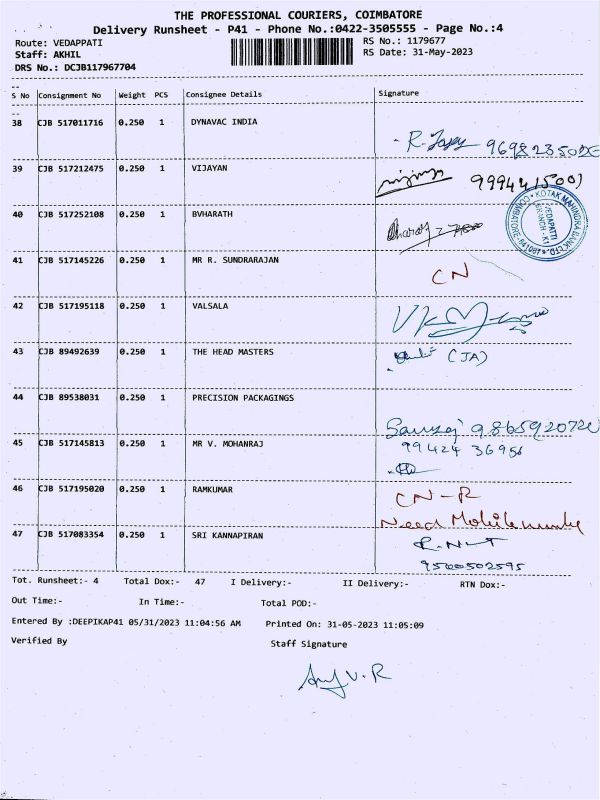 THE PROFESSIONAL COURIERS, COIMBATORE
Delivery Runsheet - P41 - Phone No.:0422-3505555 - Page No.:4
Route: VEDAPPATI RS No.: 1179677
Staff: AKHIL RS Date: 31-May-2023
DRS No.: DCJB117967704
S No Consignment No Weight PCS Consignee Details Signature
38 CJB 517011716 0.250 1 DYNAVAC INDIA
39 CJB 517212475 0.250 1 VIJAYAN
40 CJB 517252108 0.250 1 BVHARATH
KOTAK MAHINDRA BANK LTD
VEDAPATTI
BRANCH - K1
COIMBATORE-641007
41 CJB 517145226 0.250 1 MR R. SUNDRARAJAN
CN
42 CJB 517195118 0.250 1 VALSALA
43 CJB 89492639 0.250 1 THE HEAD MASTERS
(JA)
44 CJB 89538031 0.250 1 PRECISION PACKAGINGS
45 CJB 517145813 0.250 1 MR V. MOHANRAJ
99424 36956
46 CJB 517195020 0.250 1 RAMKUMAR
CN-R
Need Mobile
47 CJB 517083354 0.250 1 SRI KANNAPIRAN
9500502595
Tot. Runsheet:- 4 Total Dox:- 47 I Delivery:- II Delivery:- RTN Dox:-
Out Time:- In Time:- Total POD:-
Entered By :DEEPIKAP41 05/31/2023 11:04:56 AM Printed On: 31-05-2023 11:05:09
Verified By Staff Signature
V.R